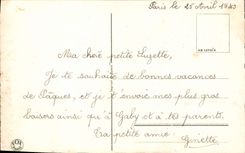 Paris le 25 Avril 1943
Ma chère petite Suzette,
Je te souhaite de bonnes vacances
de Pâques, et je t'envoie mes plus gros
baisers ainsi qu'à Gaby et à tes parents.
Ta petite amie
Ginette